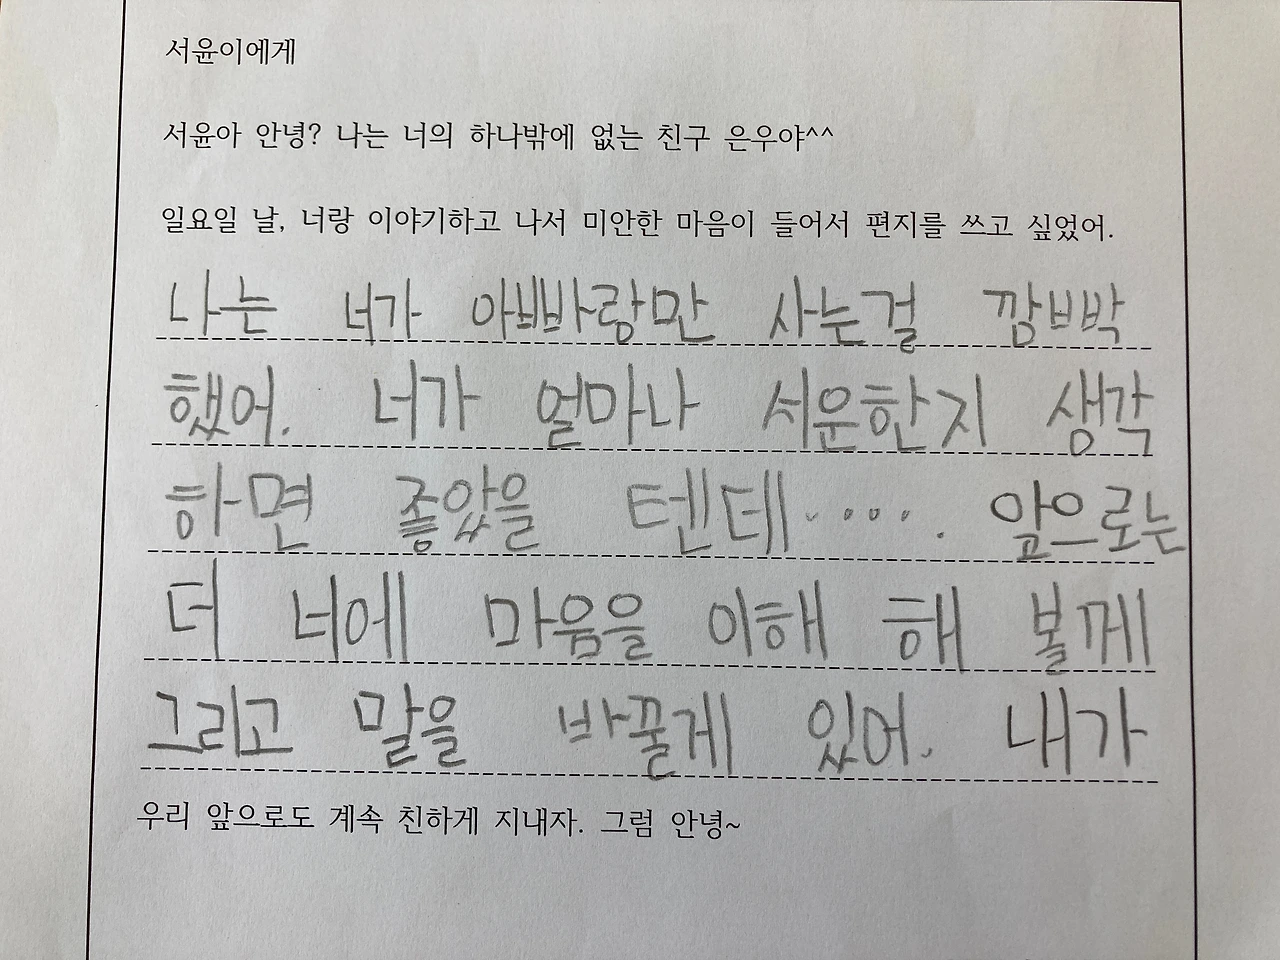 서윤이에게
서윤아 안녕? 나는 너의 하나밖에 없는 친구 은우야^^
일요일 날, 너랑 이야기하고 나서 미안한 마음이 들어서 편지를 쓰고 싶었어.
나는 너가 아빠랑만 사는걸 깜빡
했어. 너가 얼마나 서운한지 생각
하면 좋았을 텐데····. 앞으로는
더 너에 마음을 이해 해 볼께
그리고 말을 바꿀게 있어. 내가
우리 앞으로도 계속 친하게 지내자. 그럼 안녕~